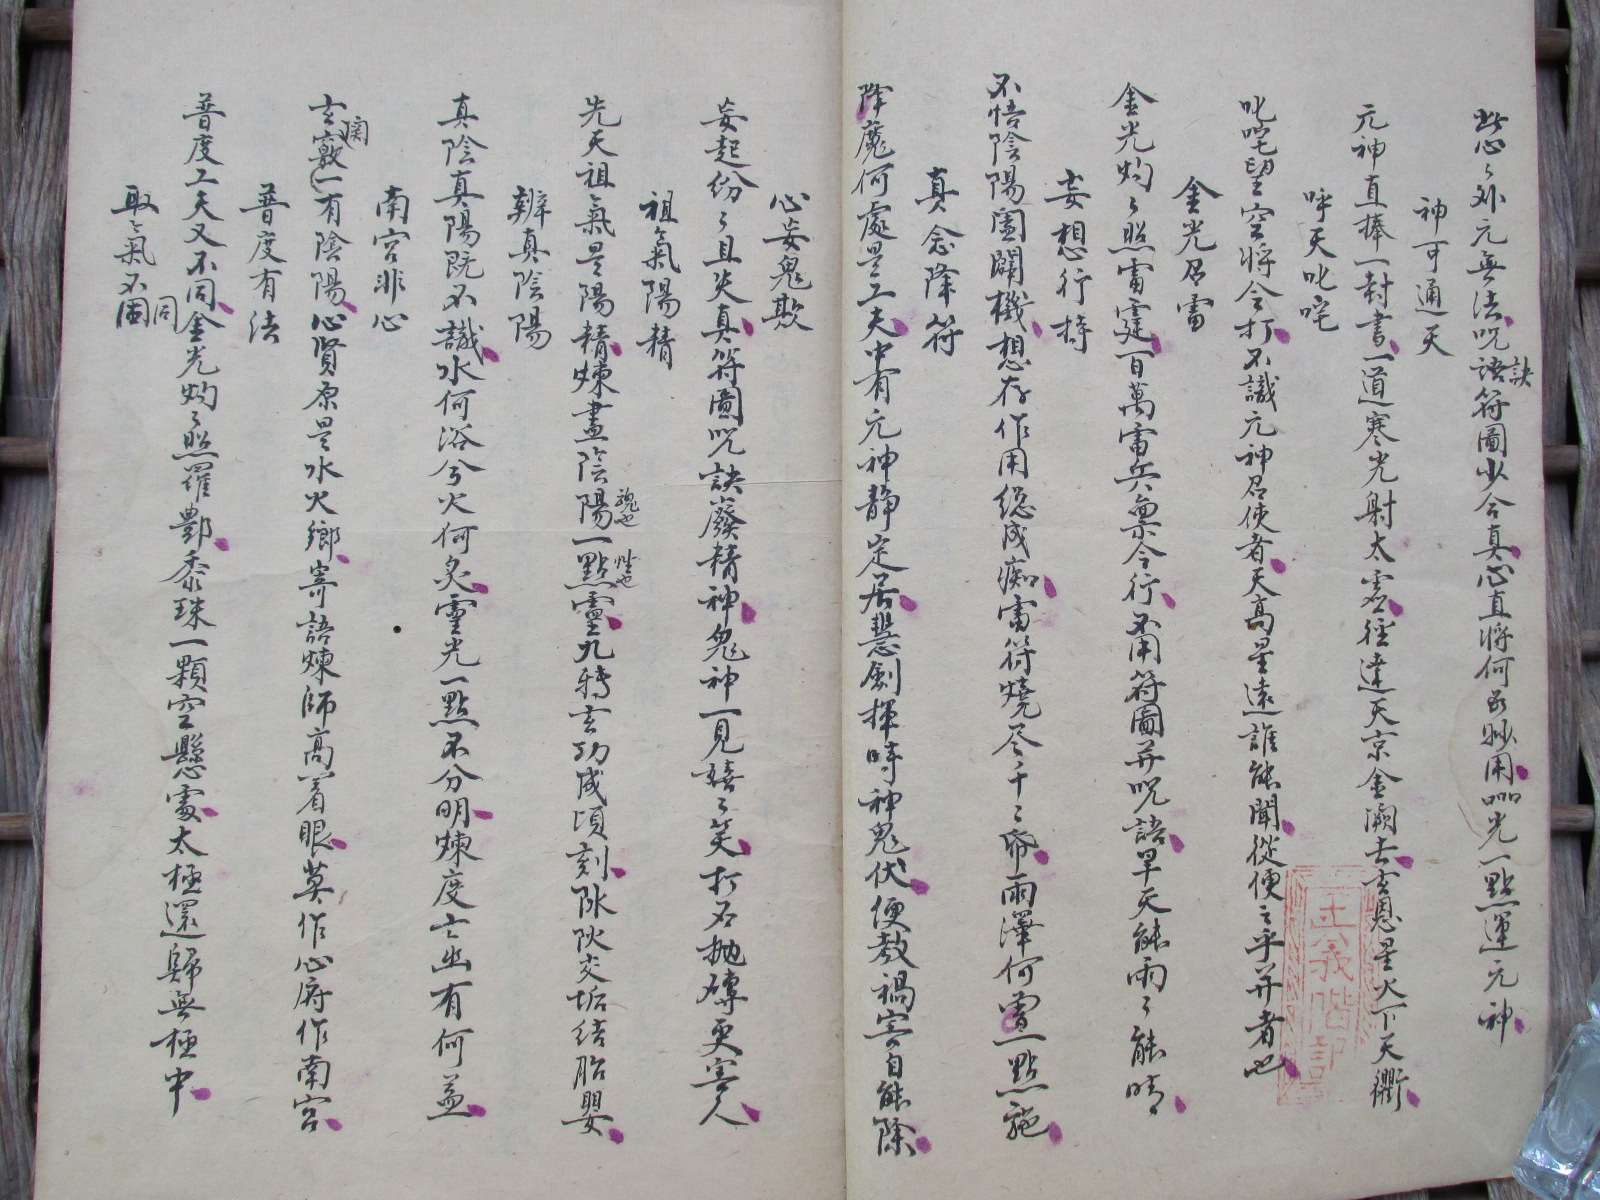 此心心外元無法咒語訣符圖少合真心直將何為妙用㗊光一點運元神
神可通天
元神直捧一封書一道寒光射太虛徑達天京金闕去玄恩星火下天衢
呼天叱咤
叱咤望空將令打不識元神召使者天高星遠誰能聞從使之乎并者也
金光召雷
金光灼灼照雷霆百萬雷兵稟令行不用符圖并咒語旱天能雨雨能晴
妄想行持
不悟陰陽闔闢機想存作用總成痴雷符燒尽千千帋雨澤何曾一點施
真念降符
降魔何處是工夫中有元神靜定居慧劍揮時神鬼伏便教禍害自能除
心妄鬼欺
妄起紛紛且失真符圖咒訣廢精神鬼神一見嘻嘻笑打石拋磚更害人
祖氣陽精
先天祖氣是陽精煉盡陰陽一點靈九轉玄功成頃刻陰垢結胎嬰
魂也 性也
辨真陰陽
真陰真陽既不識水何浴兮火何炙靈光一點不分明煉度亡幽有何益
南宮非心
玄關竅一有陰陽心賢原是水火鄉寄語煉師高着眼莫作心府作南宮
普度有法
普度工夫又不同金光灼灼照羅酆黍珠一顆空懸處太極還歸無極中
取氣不同
王義階記